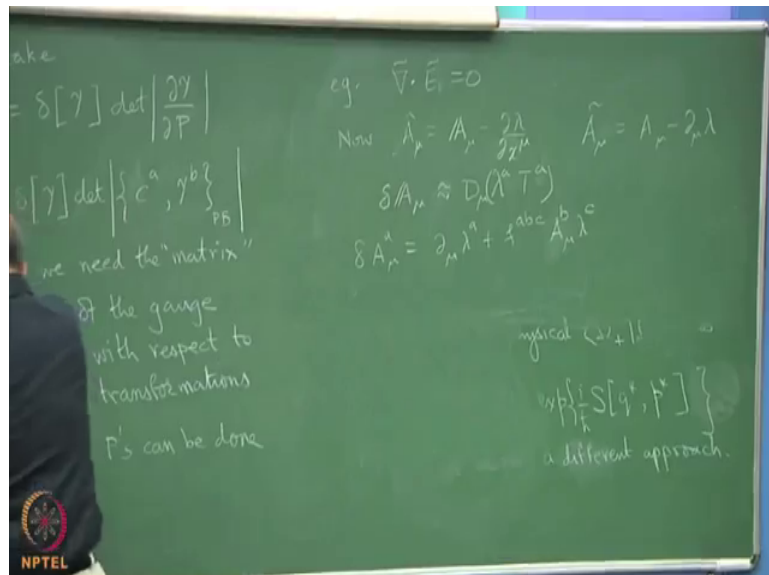 ake
= δ[γ] det |∂γ/∂P|
δ[γ] det |{c^a, γ^b}_PB|
we need the "matrix"
of the gauge
with respect to
transformations
P's can be done
eg. ∇̄·Ē, = 0
Now Ã_μ = A_μ - ∂λ/∂x^μ Ã_μ = A_μ - ∂_μ λ
δA_μ ≈ D_μ(λ^a T^a)
δA_μ^a = ∂_μ λ^a + f^abc A_μ^b λ^c
xp{i/ħ S[q*, p*]}
a different approach.
NPTEL